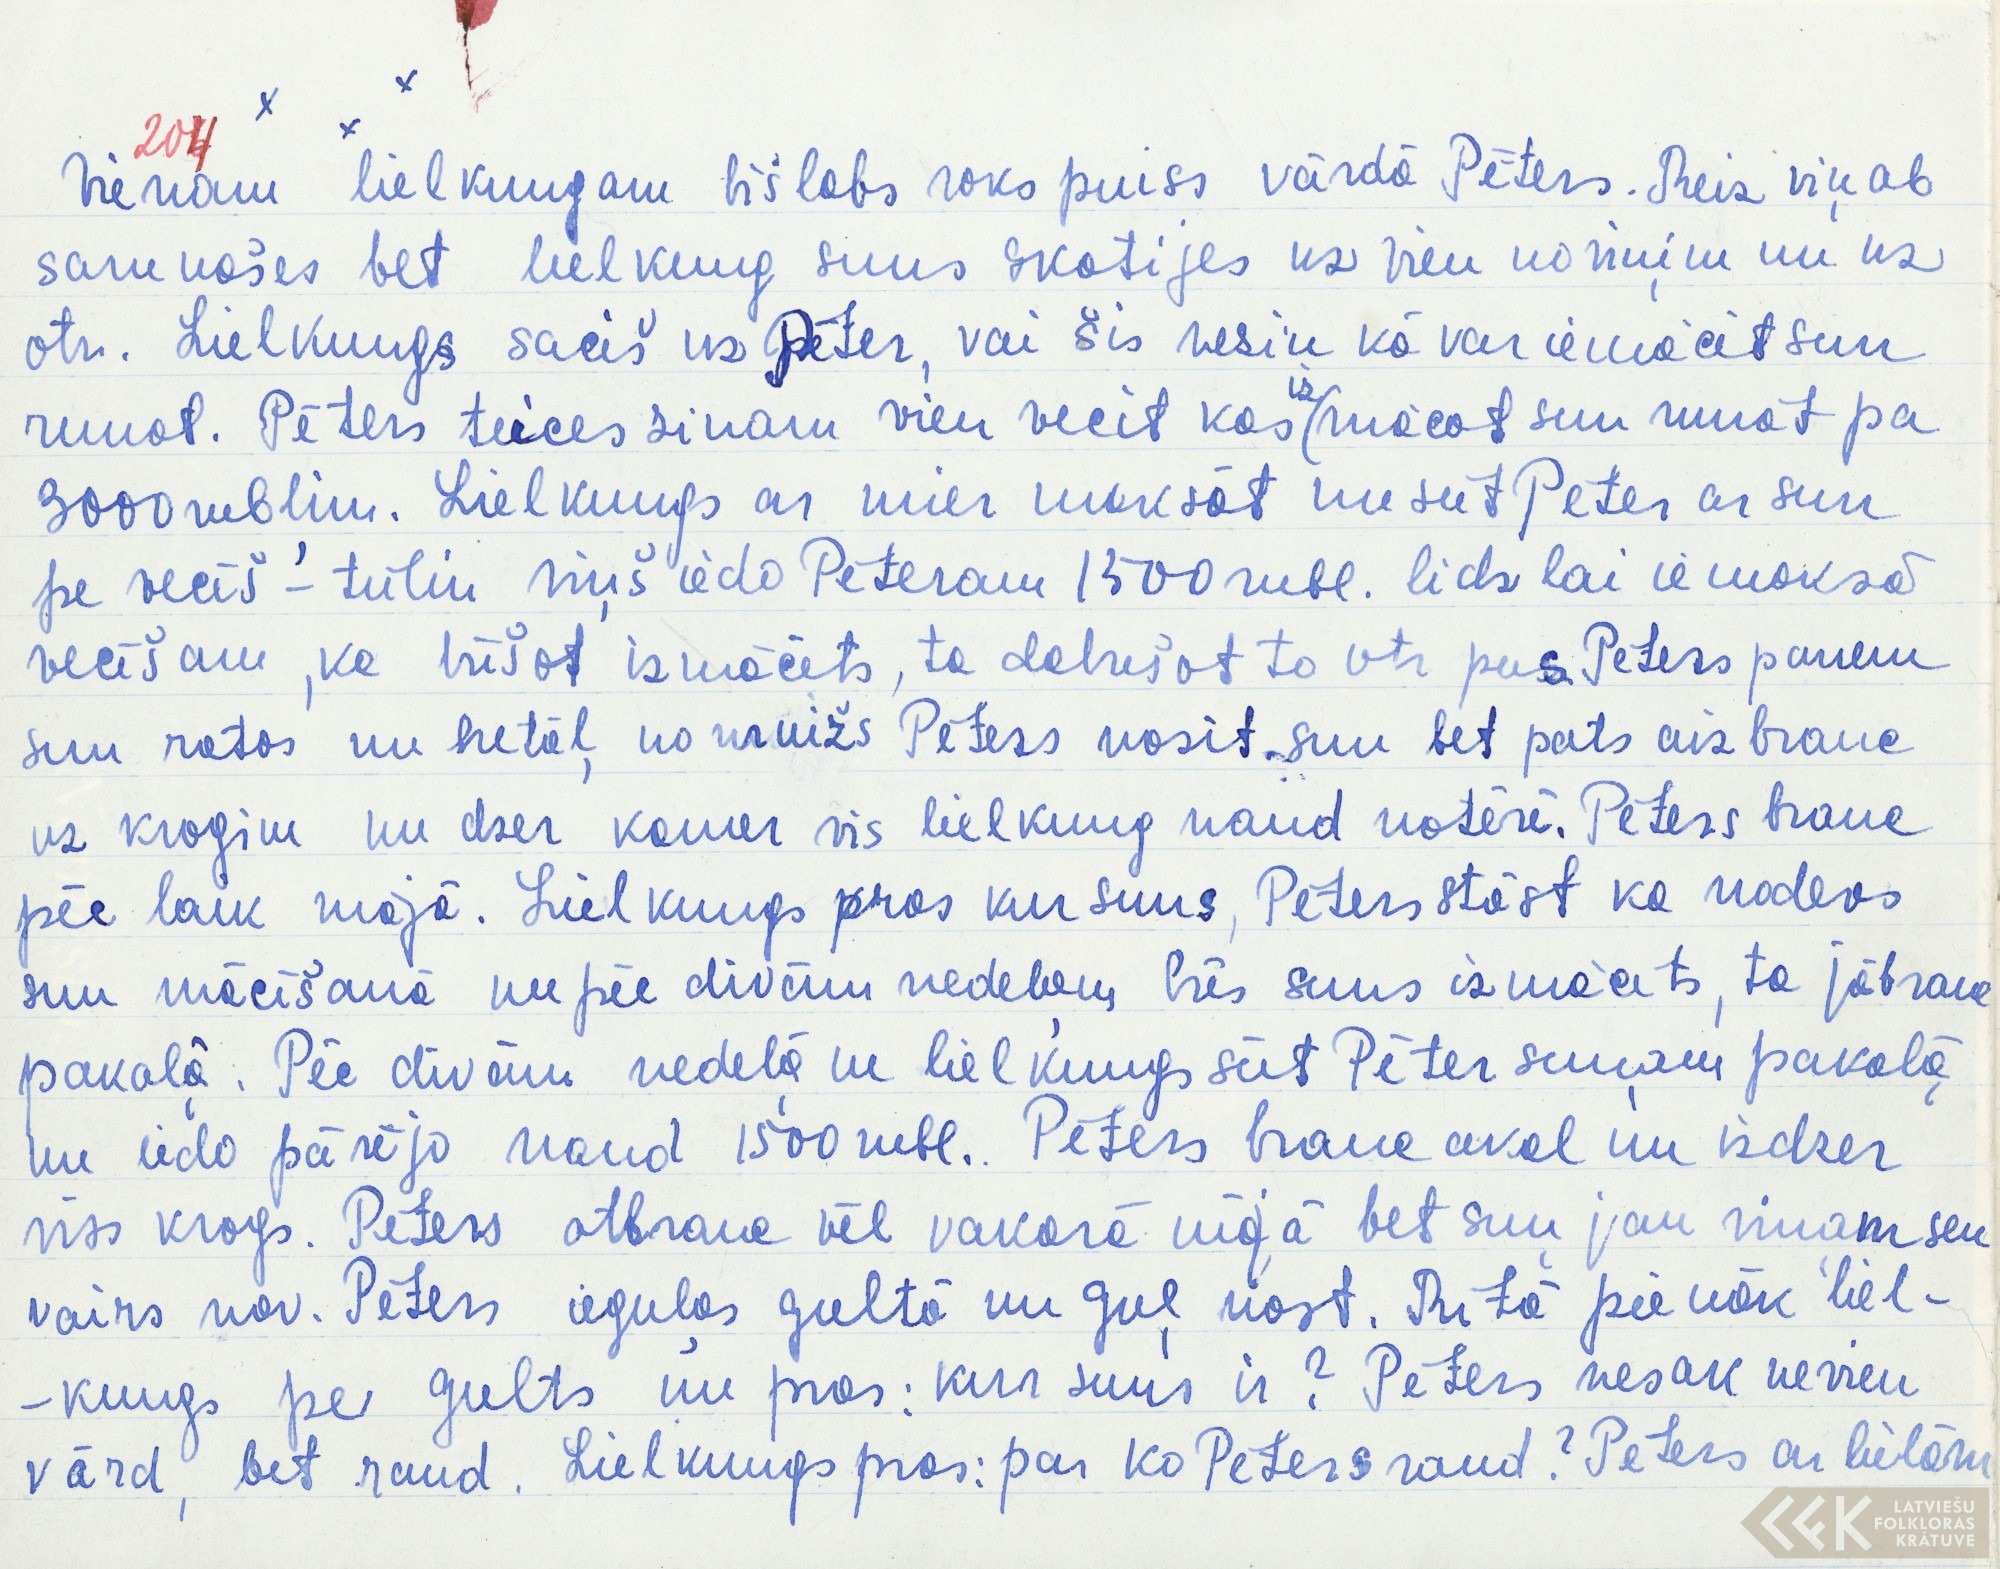 204
Vienam lielkungam bīš labs roks puiss vārdā Pēters. Reiz viņ ab
sarunošes bet lielkung suns skatijes uz vien no viņim un uz
otr. Lielkungs sacīš uz Pēter, vai šis nesin kā var iemācīt sun
runat. Pēters teices zinam vien vecit kas iz mācot sun runāt pa
3000 rublim. Lielkungs ar mier maksāt un sūt Pēter ar sun
pe vecīš – tūlin viņš iedo Pēteram 1500 rubl. lidz lai iemaksā
vecīšam, ka būšot izmācīts, ta dabušot to otr pus Pēters panem
sun ratos un netāļ no muižs Pēters nosit sun bet pats aizbrauc
uz krogim un dzer kamer vis lielkung naud notērē. Pēters brauc
pēc laik mājā. Lielkungs pras kur suns, Pēters stāst ka nodevs
sun mācīšanā un pēc divām nedeļam būs suns izmācīts, ta jābrauc
pakaļā. Pēc divām nedeļām lielkungs sūt Pēter suņam pakaļā
un iedo pārējo naud 1500 rubl. Pēters brauc akal un izdzer
viss krogs. Pēters atbrauc vēl vakarā mājā bet suņ jau viņam sen
vairs nav. Pēters iegulas gultā un guļ nost. Rītā pienāk liel-
-kungs pe gults un pras: kur suns ir? Pēters nesak nevien
vārd, bet raud. Lielkungs pras: par ko Pēters raud? Pēters ar lielām
LATVIEŠU
FOLKLORAS
KRĀTUVE